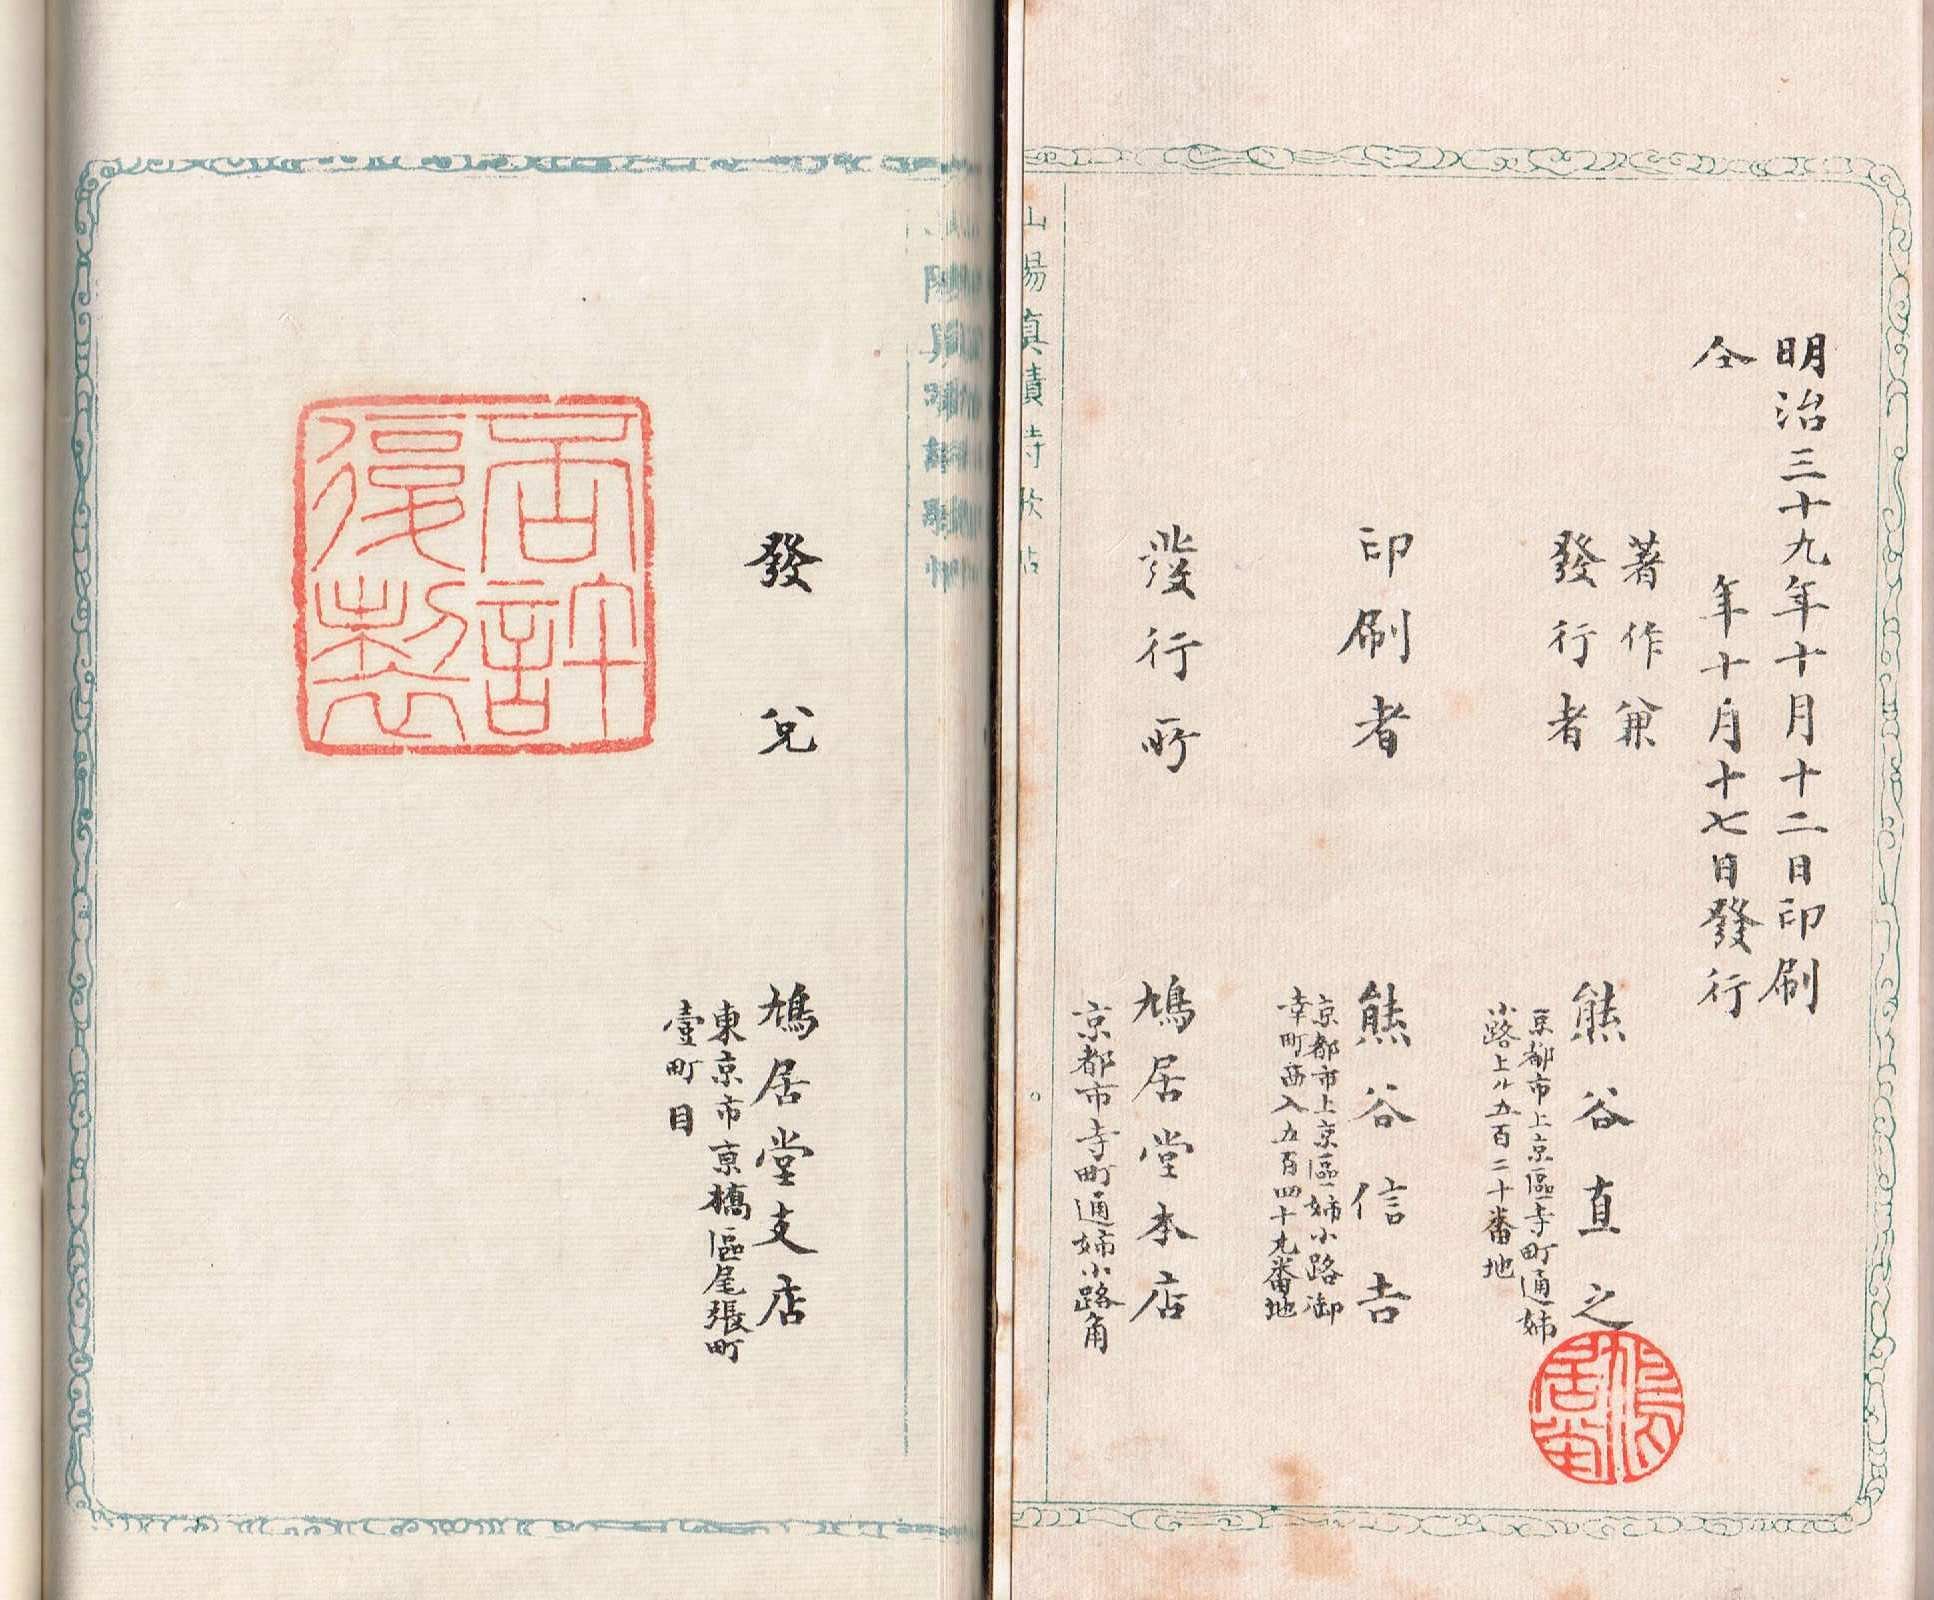 明治三十九年十月十二日印刷
仝年十月十七日發行
著作兼
發行者
熊谷直之
京都市上京區寺町通姉
小路上ル五百二十番地
鳩居堂
印刷者
熊谷信吉
京都市上京區姉小路御
幸町西入五百四十九番地
發行所
鳩居堂本店
京都市寺町通姉小路角
山陽真蹟詩歌帖
發兌
鳩居堂支店
東京市京橋區尾張町
壹町目
不許
復製